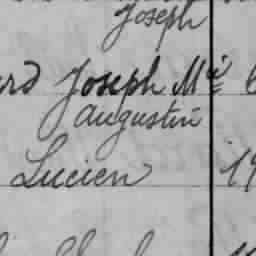 Joseph
Joseph Mie
Augustin
Lucien 19